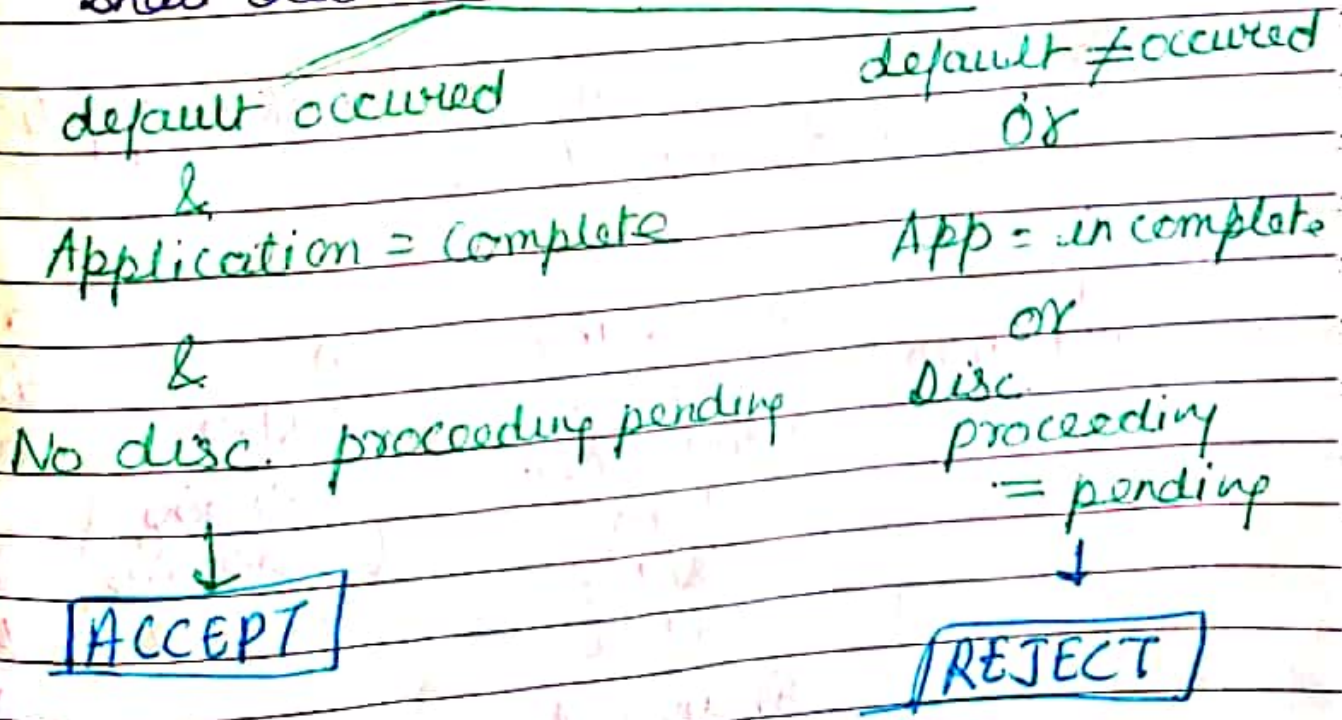 default occured
&
Application = complete
&
No disc. proceeding pending
ACCEPT
default ≠ occured
or
App = in complete
or
Disc.
proceeding
= pending
REJECT